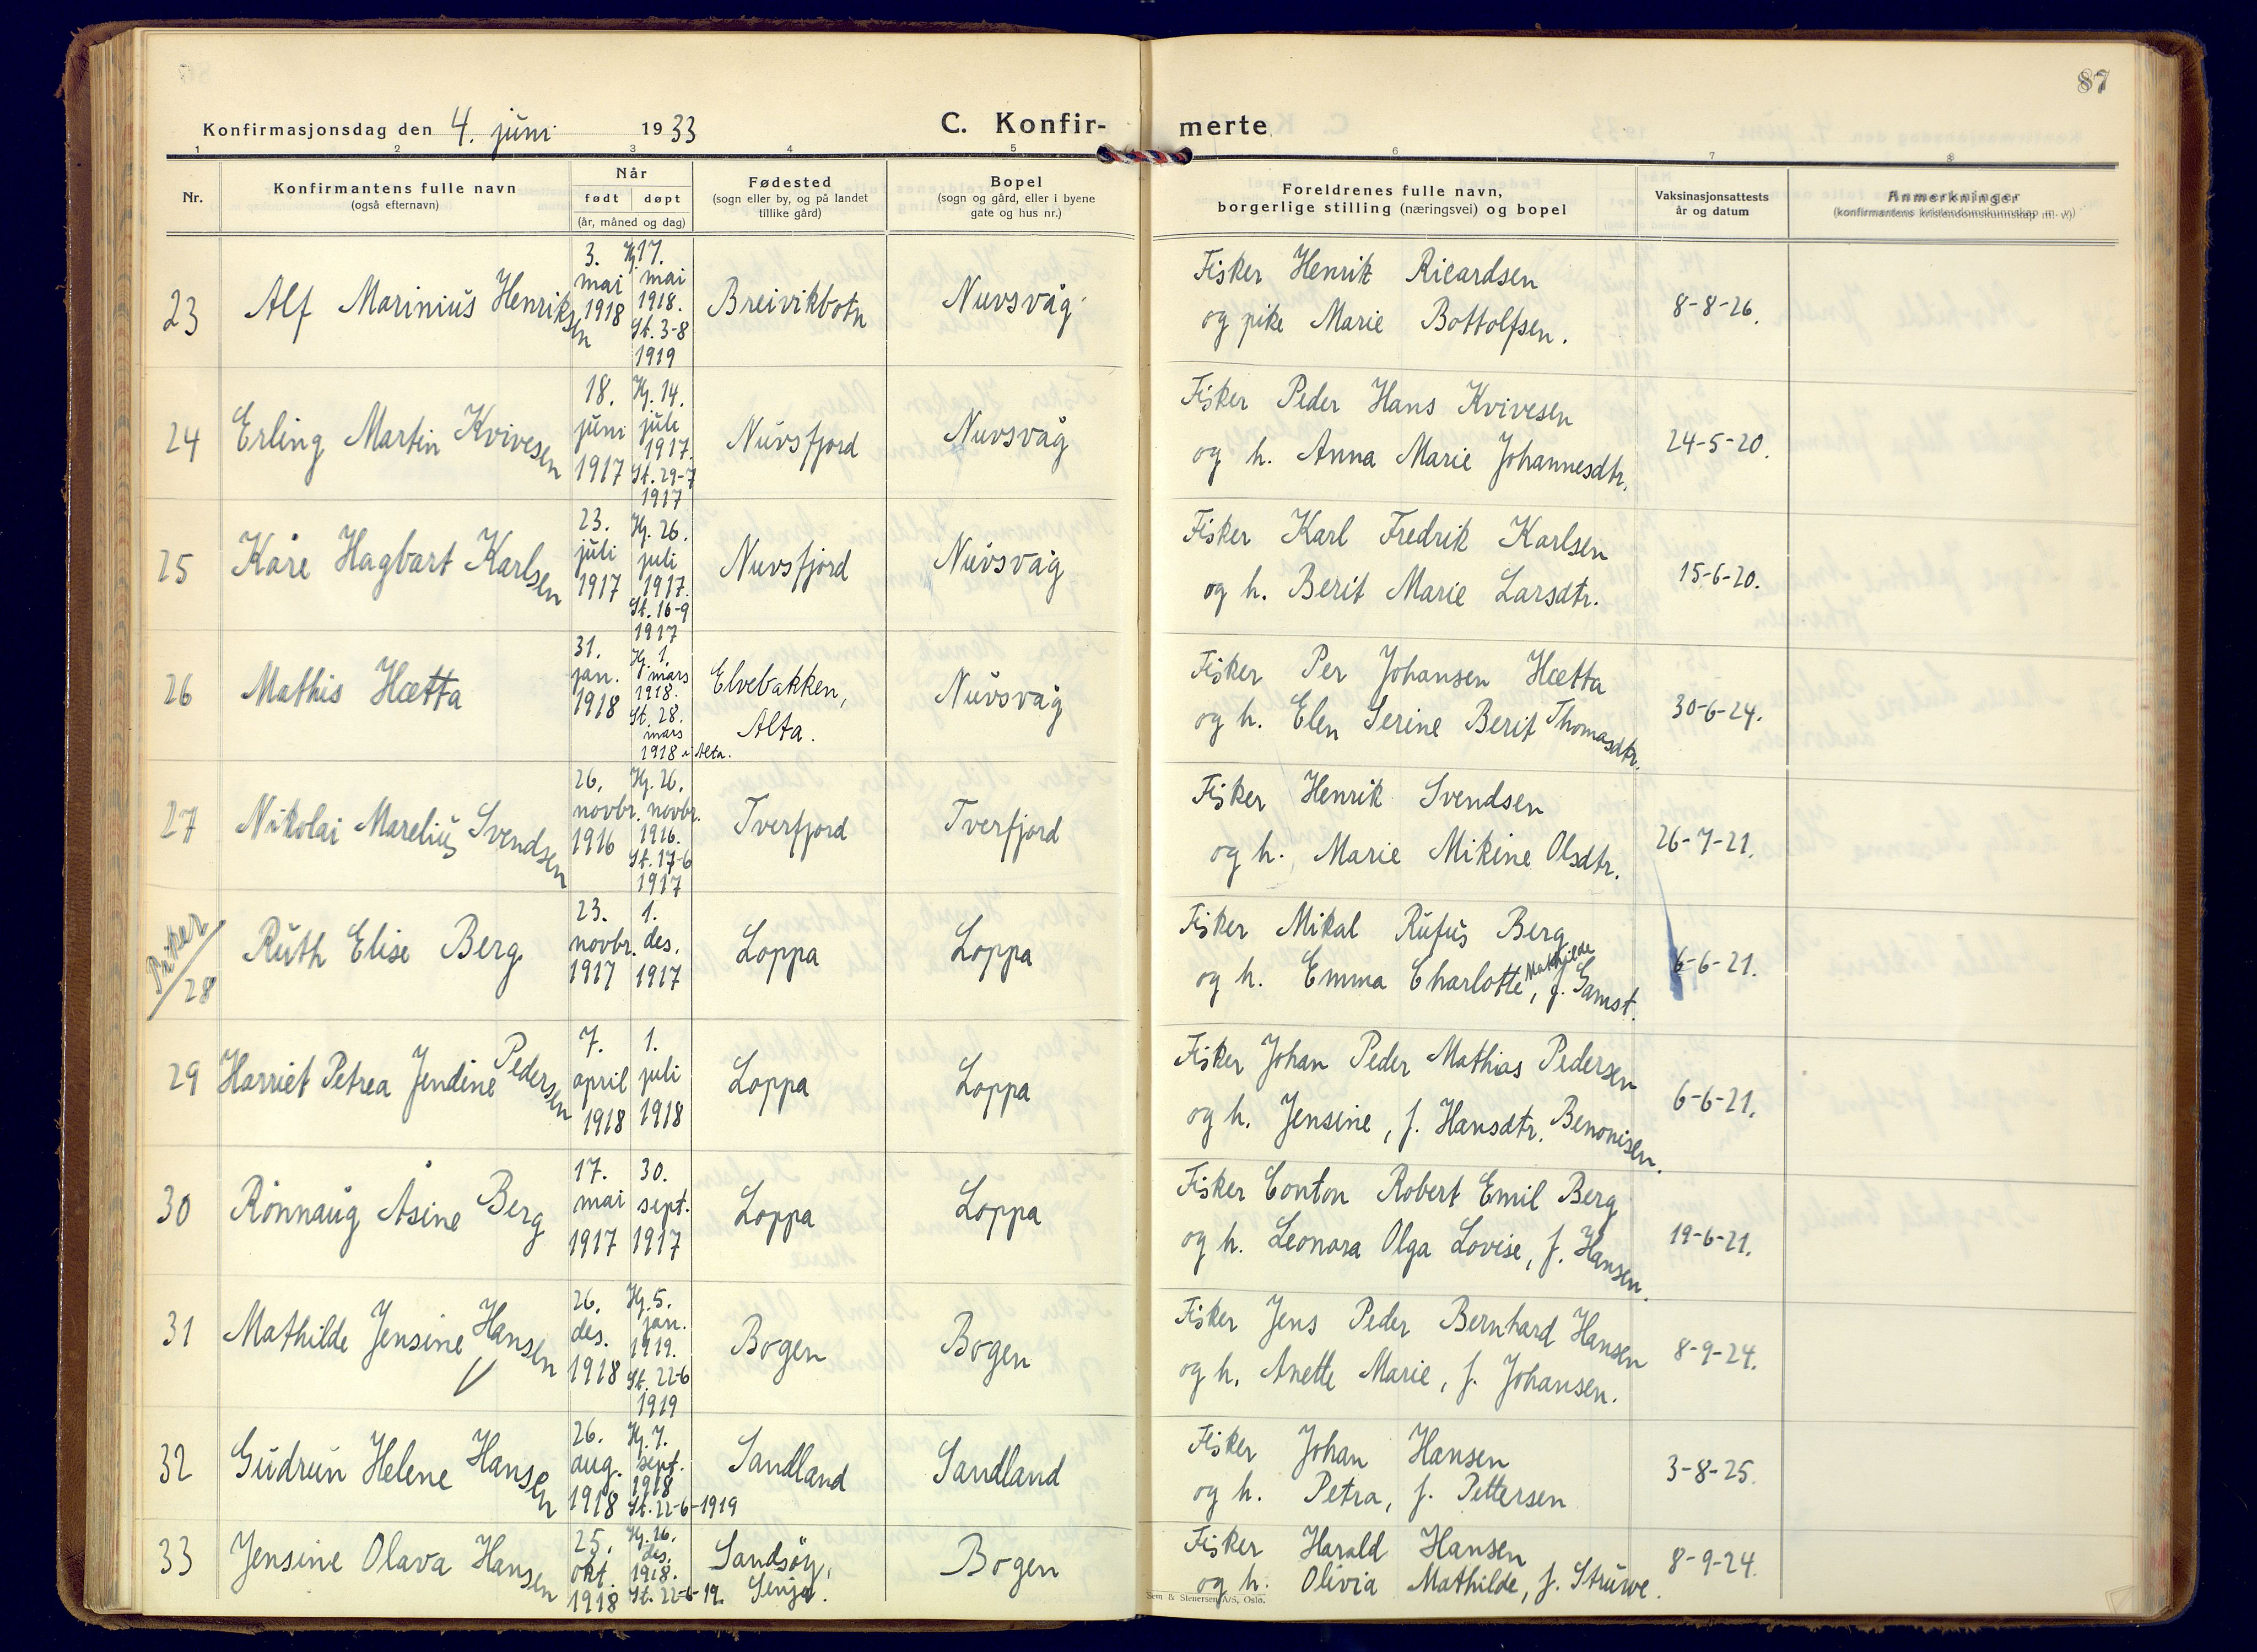 87
Konfirmasjonsdag den 4. juni 1933
C. Konfir- merte
1 2 3 4 5 6 7 8
Nr.
Konfirmantens fulle navn
(også efternavn)
Når
født døpt
(år, måned og dag)
Fødested
(sogn eller by, og på landet
tillike gård)
Bopel
(sogn og gård, eller i byene
gate og hus nr.)
Foreldrenes fulle navn,
borgerlige stilling (næringsvei) og bopel
Vaksinasjonsattests
år og datum
Anmerkninger
(konfirmantens kristendomskunnskap m. v.)
23 Alf Marinius Henriksen
3. mai 1918
Hj. 17. mai 1918. St. 3-8 1919
Breivikbotn
Nuvsvåg
Fisker Henrik Ricardsen
og pike Marie Bottolfsen.
8-8-26.
24 Erling Martin Kvivesen
18. juni 1917
Hj. 14. juli 1917. St. 29-7 1917
Nuvsfjord
Nuvsvåg
Fisker Peder Hans Kvivesen
og h. Anna Marie Johannesdtr.
24-5-20.
25 Kåre Hagbart Karlsen
23. juli 1917
Hj. 26. juli 1917. St. 16-9 1917
Nuvsfjord
Nuvsvåg
Fisker Karl Fredrik Karlsen
og h. Berit Marie Larsdtr.
15-6-20.
26 Mathis Hætta
31. jan. 1918
Hj. 1. mars 1918. St. 28. mars 1918 i Alta.
Elvebakken,
Alta.
Nuvsvåg
Fisker Per Johansen Hætta
og h. Elen Serine Berit Thomasdtr.
30-6-24.
27 Nikolai Marelius Svendsen
26. novbr. 1916
Hj. 26. novbr. 1916. St. 17-6 1917
Tverfjord
Tverfjord
Fisker Henrik Svendsen
og h. Marie Mikine Olsdtr.
26-7-21.
Piker
28 Ruth Elise Berg
23. novbr. 1917
1. des. 1917
Loppa
Loppa
Fisker Mikal Rufus Berg
og h. Emma Charlotte Mathilde, f. Gamst.
6-6-21.
29 Harriet Petrea Jendine Pedersen
7. april 1918
1. juli 1918
Loppa
Loppa
Fisker Johan Peder Mathias Pedersen
og h. Jensine, f. Hansdtr. Benonisen.
6-6-21.
30 Rønnaug Åsine Berg
17. mai 1917
30. sept. 1917
Loppa
Loppa
Fisker Conton Robert Emil Berg
og h. Leonora Olga Lovise, f. Hansen.
19-6-21.
31 Mathilde Jensine Hansen
26. des. 1918
Hj. 5. jan. 1919. St. 22-6 1919
Bogen
Bogen
Fisker Jens Peder Bernhard Hansen
og h. Anette Marie, f. Johansen.
8-9-24.
32 Gudrun Helene Hansen
26. aug. 1918
Hj. 7. sept. 1918 St. 22-6-1919
Sandland
Sandland
Fisker Johan Hansen
og h. Petra, f. Pettersen
3-8-25.
33 Jensine Olava Hansen
25. okt. 1918
Hj. 26. des. 1918. St. 22-6-19.
Sandsøy,
Senja.
Bogen
Fisker Harald Hansen
og h. Olivia Mathilde, f. Struwe.
8-9-24.
Sem & Stenersen A/S, Oslo.